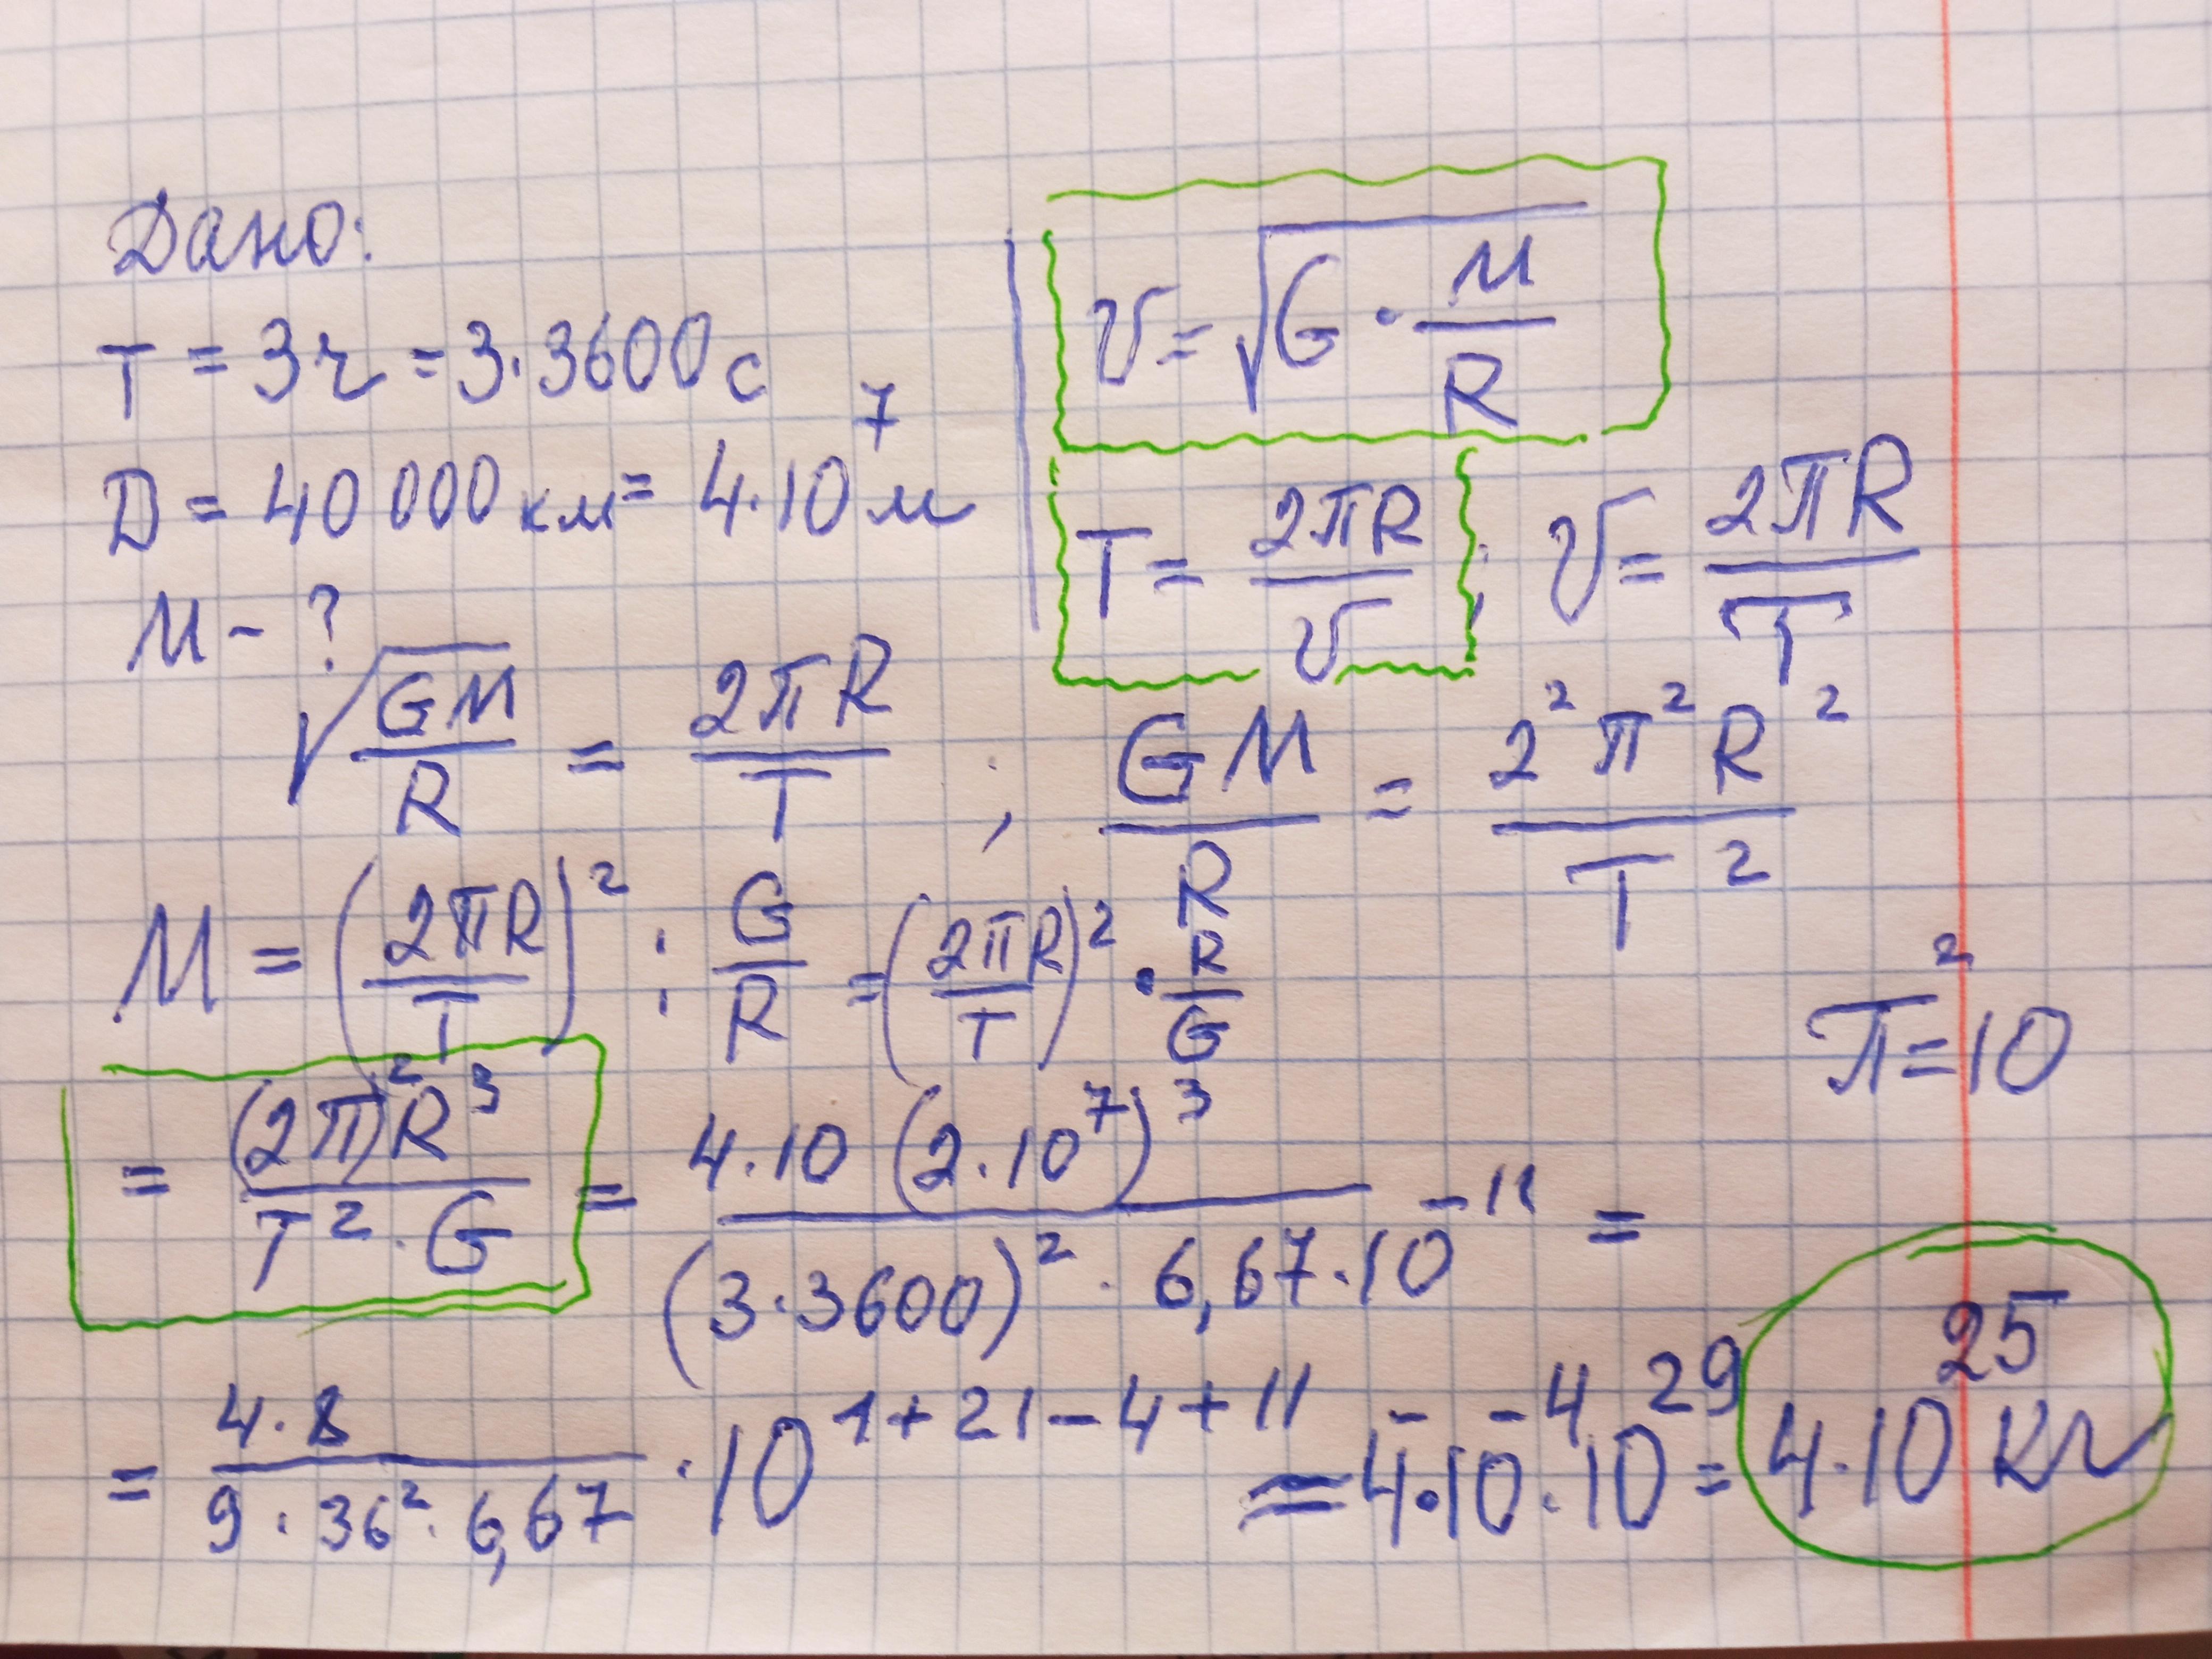 Дано:
T = 3ч = 3·3600 с
D = 40 000 км = 4·10⁷ м
M - ?
v = √(G · M/R)
T = 2πR/v ; v = 2πR/T
√(GM/R) = 2πR/T ; GM/R = 2²π²R²/T²
M = (2πR/T)² : G/R = (2πR/T)² · R/G
π² = 10
= (2π)²R³/(T²·G) = 4·10 (2·10⁷)³/((3·3600)² · 6,67·10⁻¹¹) =
= 4·8/(9·36²·6,67) · 10¹⁺²¹⁻⁴⁺¹¹ = 4·10⁻⁴·10²⁹ = 4·10²⁵ кг